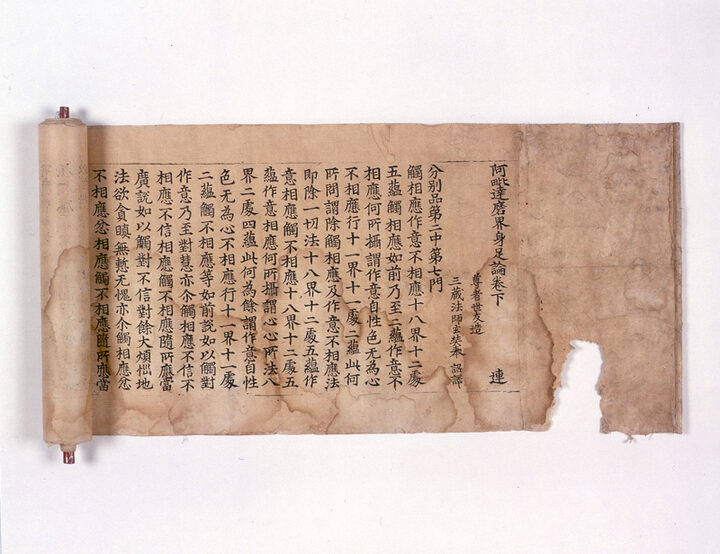 阿毗達磨界身足論卷下 連
尊者世友造
三藏法師玄奘奉 詔譯
分別品第二中第七門
觸相應作意不相應十八界十二處
五蘊觸相應如前乃至二蘊作意不
相應何所攝謂作意自性色无為心
不相應行十一界十一處二蘊此何
所問謂除觸相應及作意不相應法
即除一切法十八界十二處五蘊作
意相應觸不相應十八界十二處五
蘊作意相應何所攝謂心心所法八
界二處四蘊此何為餘謂作意自性
色无為心不相應行十一界十一處
二蘊觸不相應等如前說如以觸對
作意乃至對慧亦尒觸相應不信不
相應不信相應觸不相應隨所應當
廣說如以觸對不信對餘大煩惱地
法欲貪瞋無慙无愧亦尒觸相應忿
不相應忿相應觸不相應隨所應當